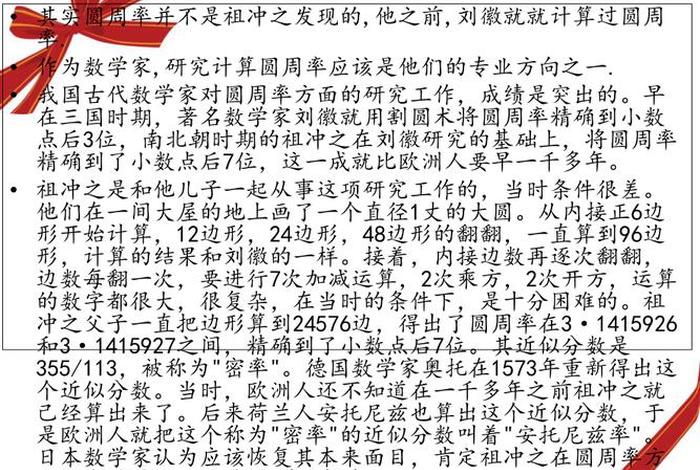 • 其实圆周率并不是祖冲之发现的,他之前,刘徽就就计算过圆周
率.
• 作为数学家,研究计算圆周率应该是他们的专业方向之一.
• 我国古代数学家对圆周率方面的研究工作，成绩是突出的。早
在三国时期，著名数学家刘徽就用割圆术将圆周率精确到小数
点后3位，南北朝时期的祖冲之在刘徽研究的基础上，将圆周率
精确到了小数点后7位，这一成就比欧洲人要早一千多年。
• 祖冲之是和他儿子一起从事这项研究工作的，当时条件很差。
他们在一间大屋的地上画了一个直径1丈的大圆。从内接正6边
形开始计算，12边形，24边形，48边形的翻翻，一直算到96边
形，计算的结果和刘徽的一样。接着，内接边数再逐次翻翻，
边数每翻一次，要进行7次加减运算，2次乘方，2次开方，运算
的数字都很大，很复杂，在当时的条件下，是十分困难的。祖
冲之父子一直把边形算到24576边，得出了圆周率在3·1415926
和3·1415927之间，精确到了小数点后7位。其近似分数是
355/113，被称为"密率"。德国数学家奥托在1573年重新得出这
个近似分数。当时，欧洲人还不知道在一千多年之前祖冲之就
己经算出来了。后来荷兰人安托尼兹也算出这个近似分数，于
是欧洲人就把这个称为"密率"的近似分数叫着"安托尼兹率"。
日本数学家认为应该恢复其本来面目，肯定祖冲之在圆周率方